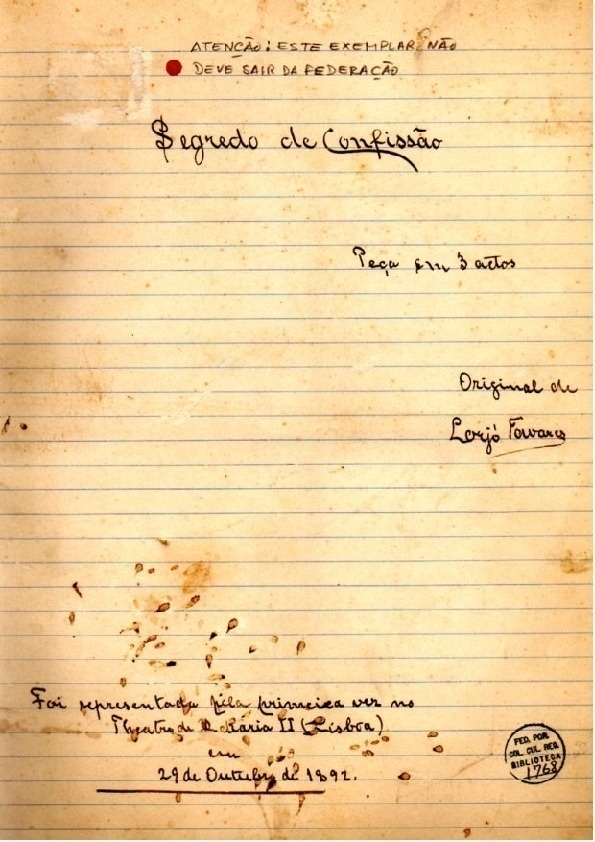 ATENÇÃO: ESTE EXEMPLAR NÃO
DEVE SAIR DA FEDERAÇÃO
Segredo de Confissão
Peça em 3 actos
Original de
Lorjó Tavares
Foi representada pela primeira vez no
Theatro de D. Maria II (Lisboa)
em
29 de Outubro de 1892.
FED. POR.
COL. CUL. REC.
BIBLIOTECA
1768